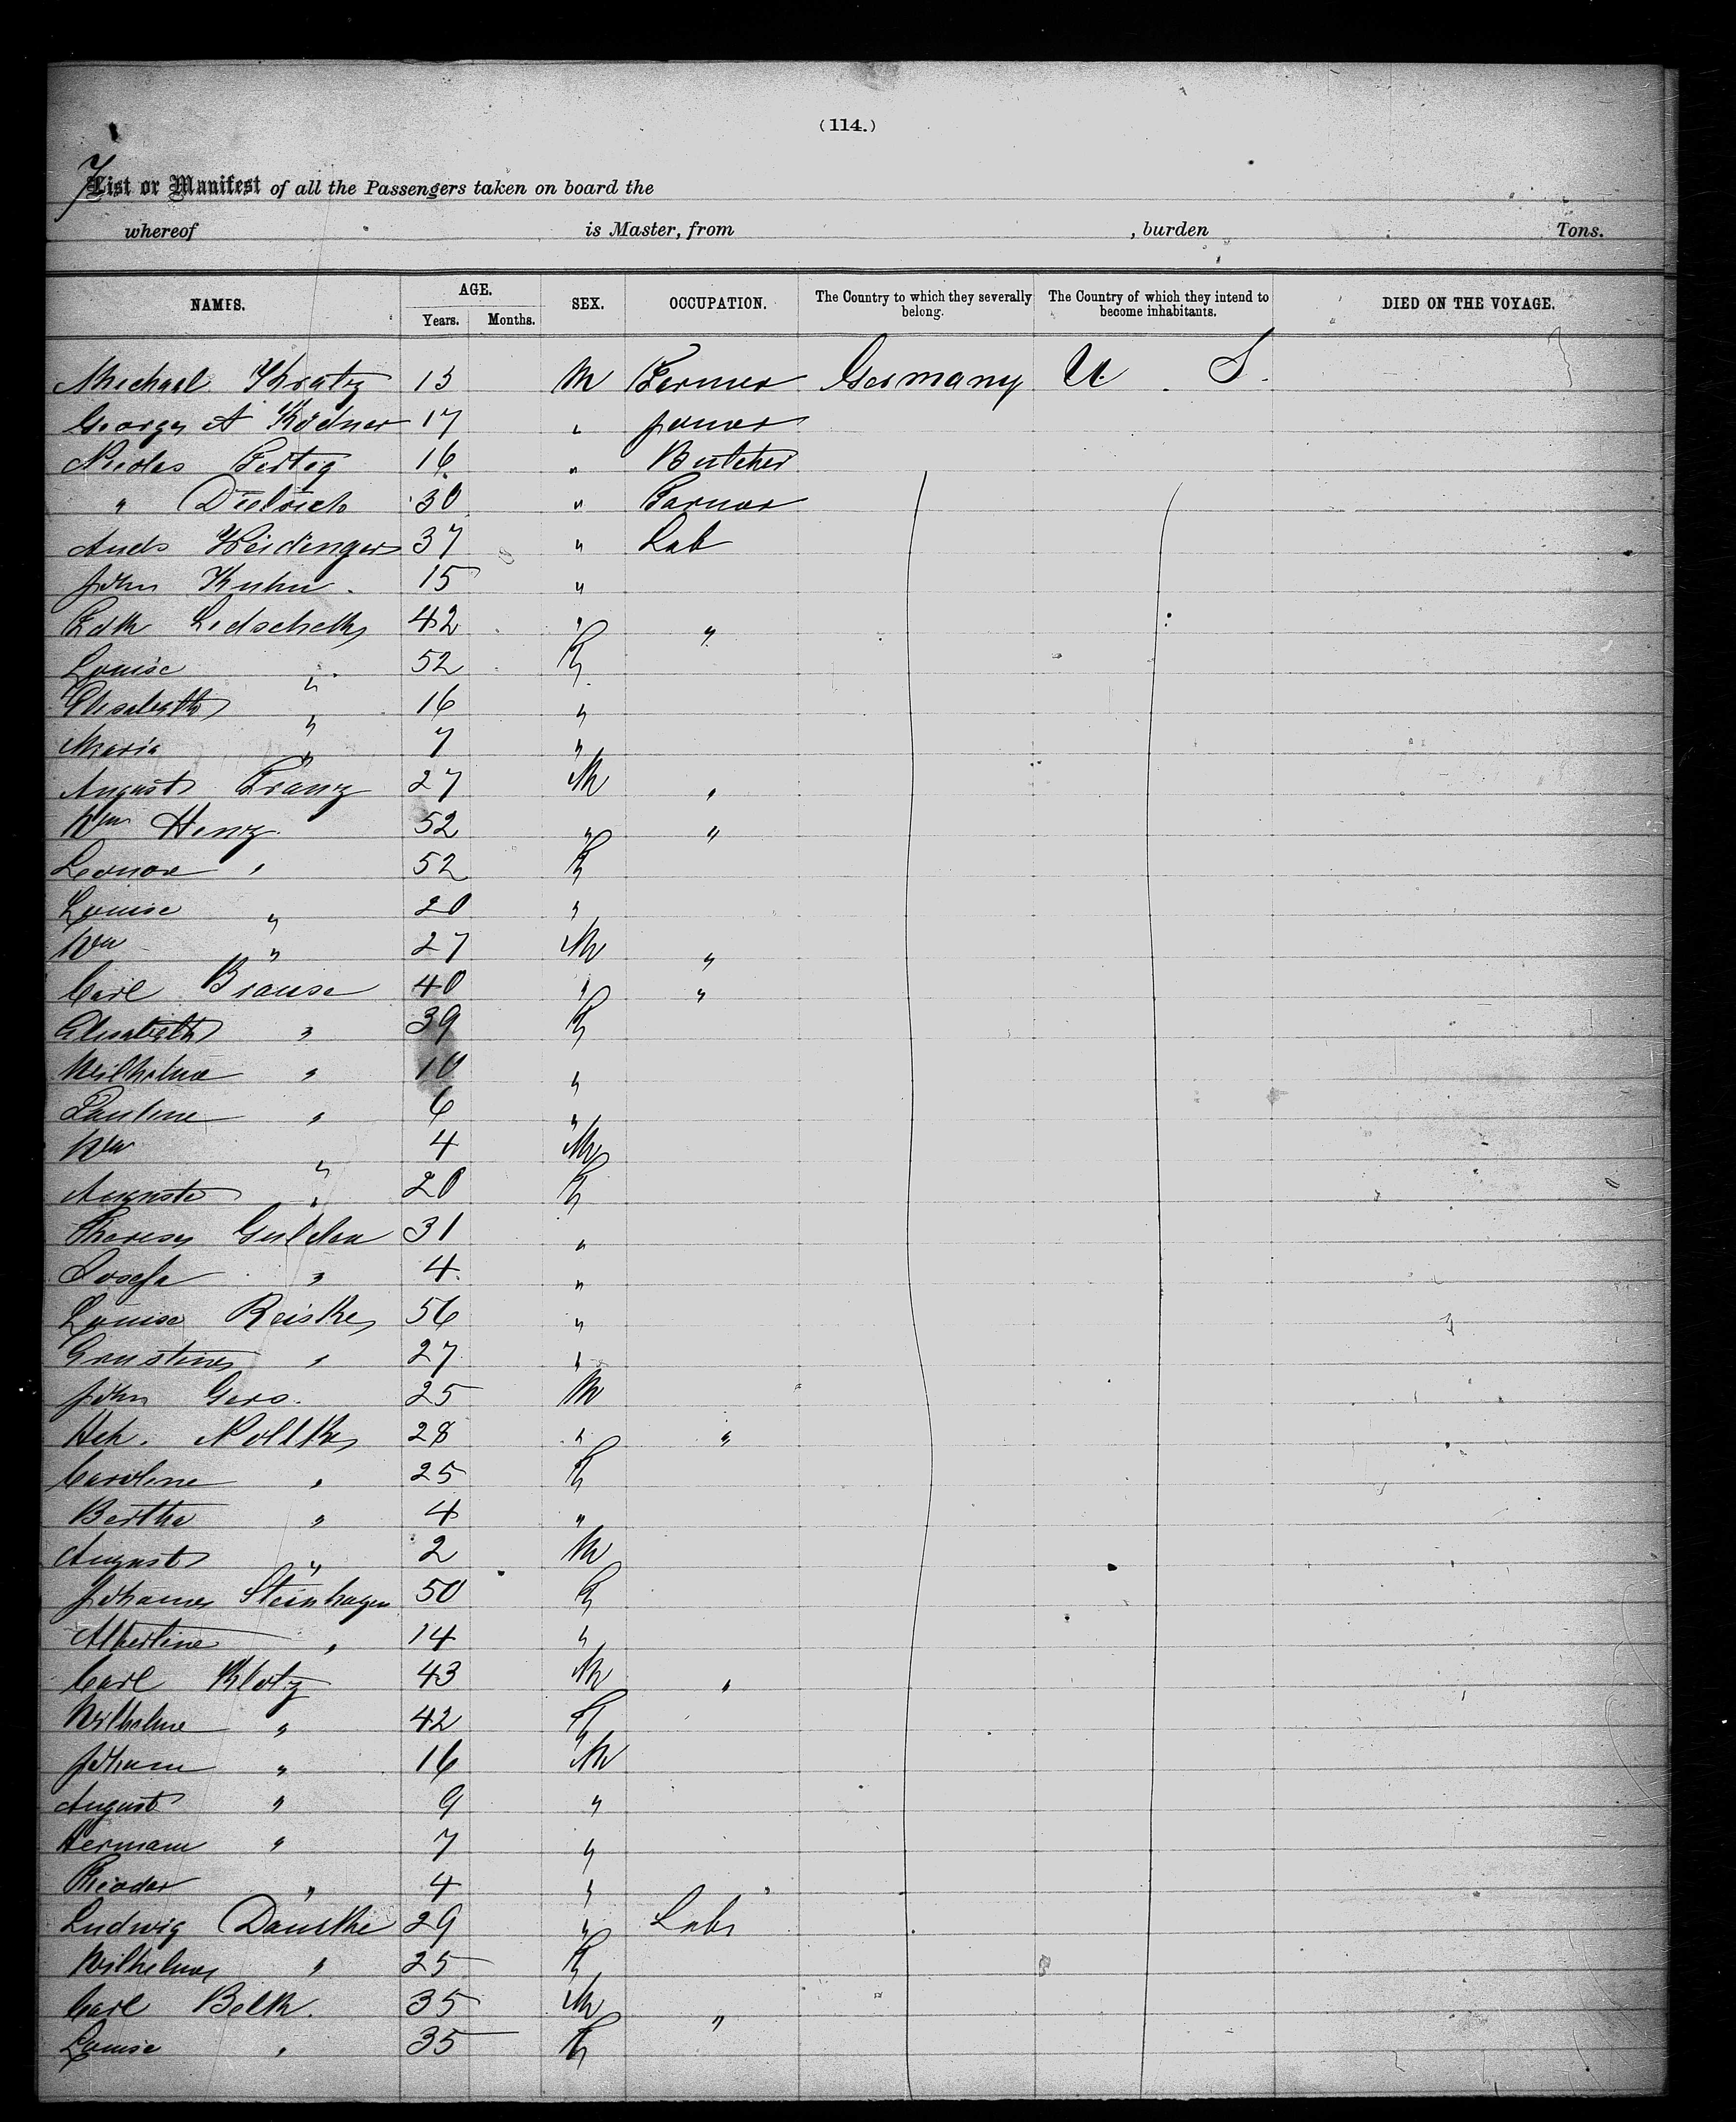 (114.)
7
List or Manifest of all the Passengers taken on board the
whereof is Master, from , burden Tons.
NAMES. AGE. Years. Months. SEX. OCCUPATION. The Country to which they severally belong. The Country of which they intend to become inhabitants. DIED ON THE VOYAGE.
Michael Kratz 13 M Farmer Germany U. S.
George A Ködner 17 " farmer
Nicolas Fertig 16 " Butcher
" Dietrich 30 " Farmer
Ands Weidinger 37 " Lab
John Kuhn 15 "
42 " "
Louise " 52 F
Elisabeth " 16 "
Maria " 7 "
August Franz 27 M "
Wm Henz 52 " "
Leonore " 52 F
Louise " 20 "
Wm " 27 M "
Carl Brause 40 " "
Elisabeth " 39 F
Wilhelme " 10 "
Pauline " 6 "
Wm " 4 M
Auguste " 20 F
Therese Guldan 31 "
Josefa " 4 "
Louise Reiske 56 "
Ernstine " 27 "
John Gers. 25 M
Hch. Noltke 28 " "
Caroline " 25 F
Bertha " 4 "
August " 2 M
Johanne Steinhagen 50 F
Albertine " 14 "
Carl Klotz 43 M "
Wilhelme " 42 F
Johann " 16 M
August " 9 "
Hermann " 7 "
Theodor " 4 " "
Ludwig Dauske 29 " Labr
Wilhelme " 25 F
Carl Belk. 35 M "
Louise " 35 F